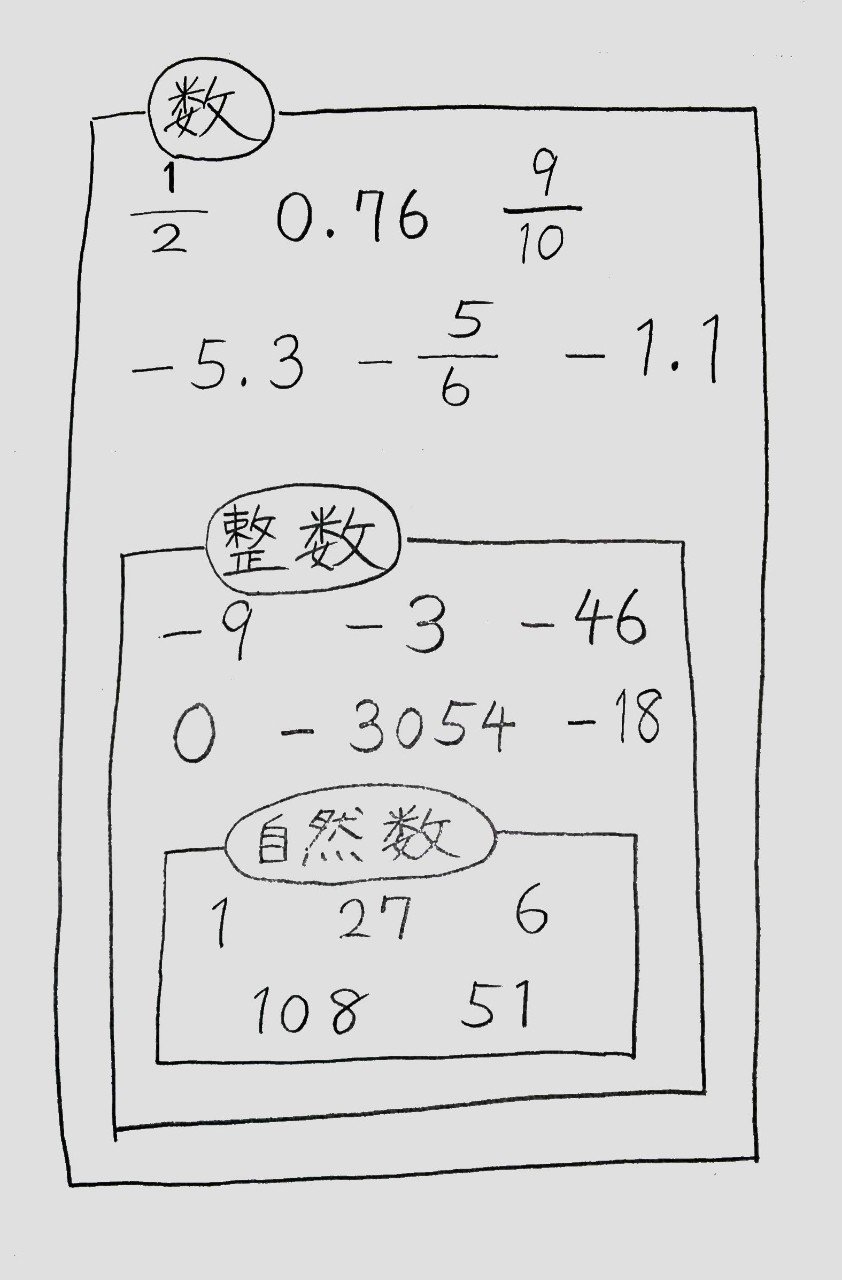 数
1/2 0.76 9/10
-5.3 -5/6 -1.1
整数
-9 -3 -46
0 -3054 -18
自然数
1 27 6
108 51